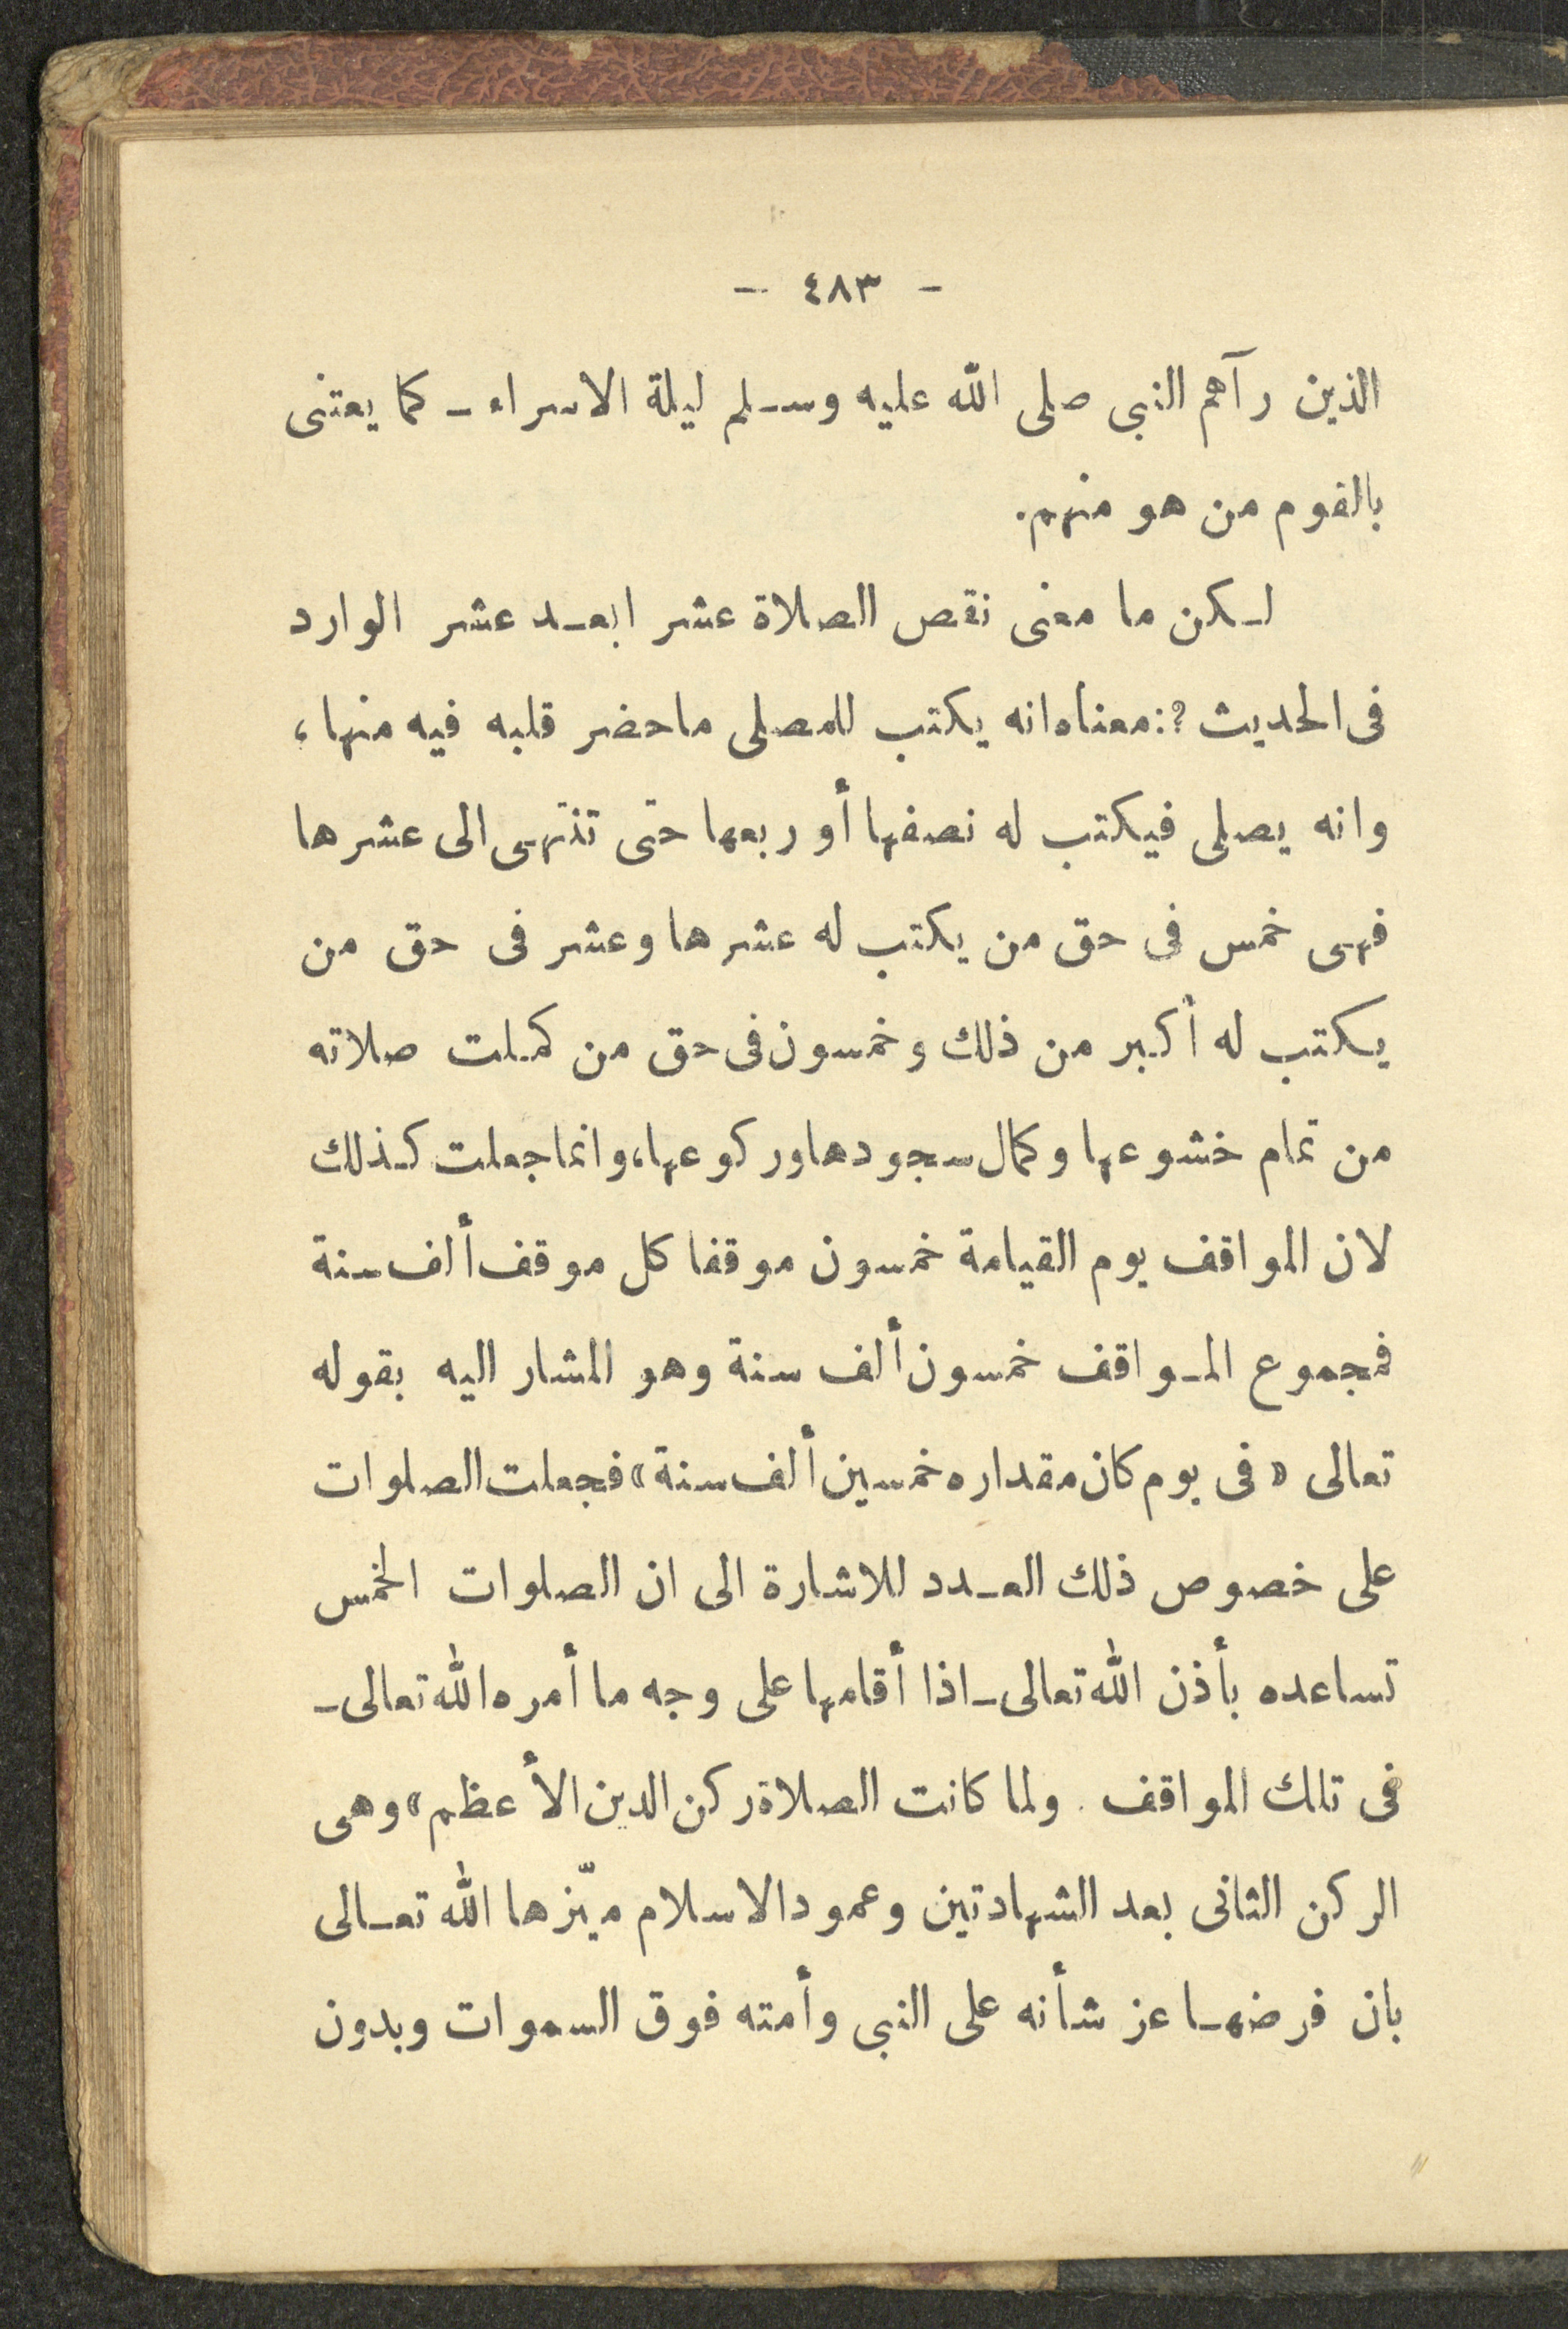 - ٤٨٣ -
الذين رآهم النبى صلى الله عليه وسلم ليلة الاسراء - كما يعتنى
بالقوم من هو منهم.
لكن ما معنى نقص الصلاة عشر ابعد عشر الوارد
فى الحديث ?: معناه انه يكتب للمصلى ما حضر قلبه فيه منها،
وانه يصلى فيكتب له نصفها أو ربعها حتى تنتهى الى عشرها
فهى خمس فى حق من يكتب له عشرها وعشر فى حق من
يكتب له أكبر من ذلك وخمسون فى حق من كملت صلاته
من تمام خشوعها وكمال سجودها وركوعها، وانما جعلت كذلك
لان المواقف يوم القيامة خمسون موقفا كل موقف ألف سنة
فمجموع المواقف خمسون ألف سنة وهو المشار اليه بقوله
تعالى «فى يوم كان مقداره خمسين ألف سنة» فجعلت الصلوات
على خصوص ذلك العدد للاشارة الى ان الصلوات الخمس
تساعده بأذن الله تعالى - اذا أقامها على وجه ما أمره الله تعالى -
فى تلك المواقف . ولما كانت الصلاة ركن الدين الأعظم» وهى
الركن الثانى بعد الشهادتين وعمود الاسلام ميّزها الله تعالى
بان فرضها عز شأنه على النبى وأمته فوق السموات وبدون